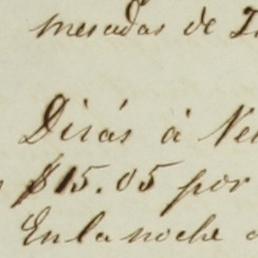 mesadas de
Dirás á
$15.05 por
En la noche